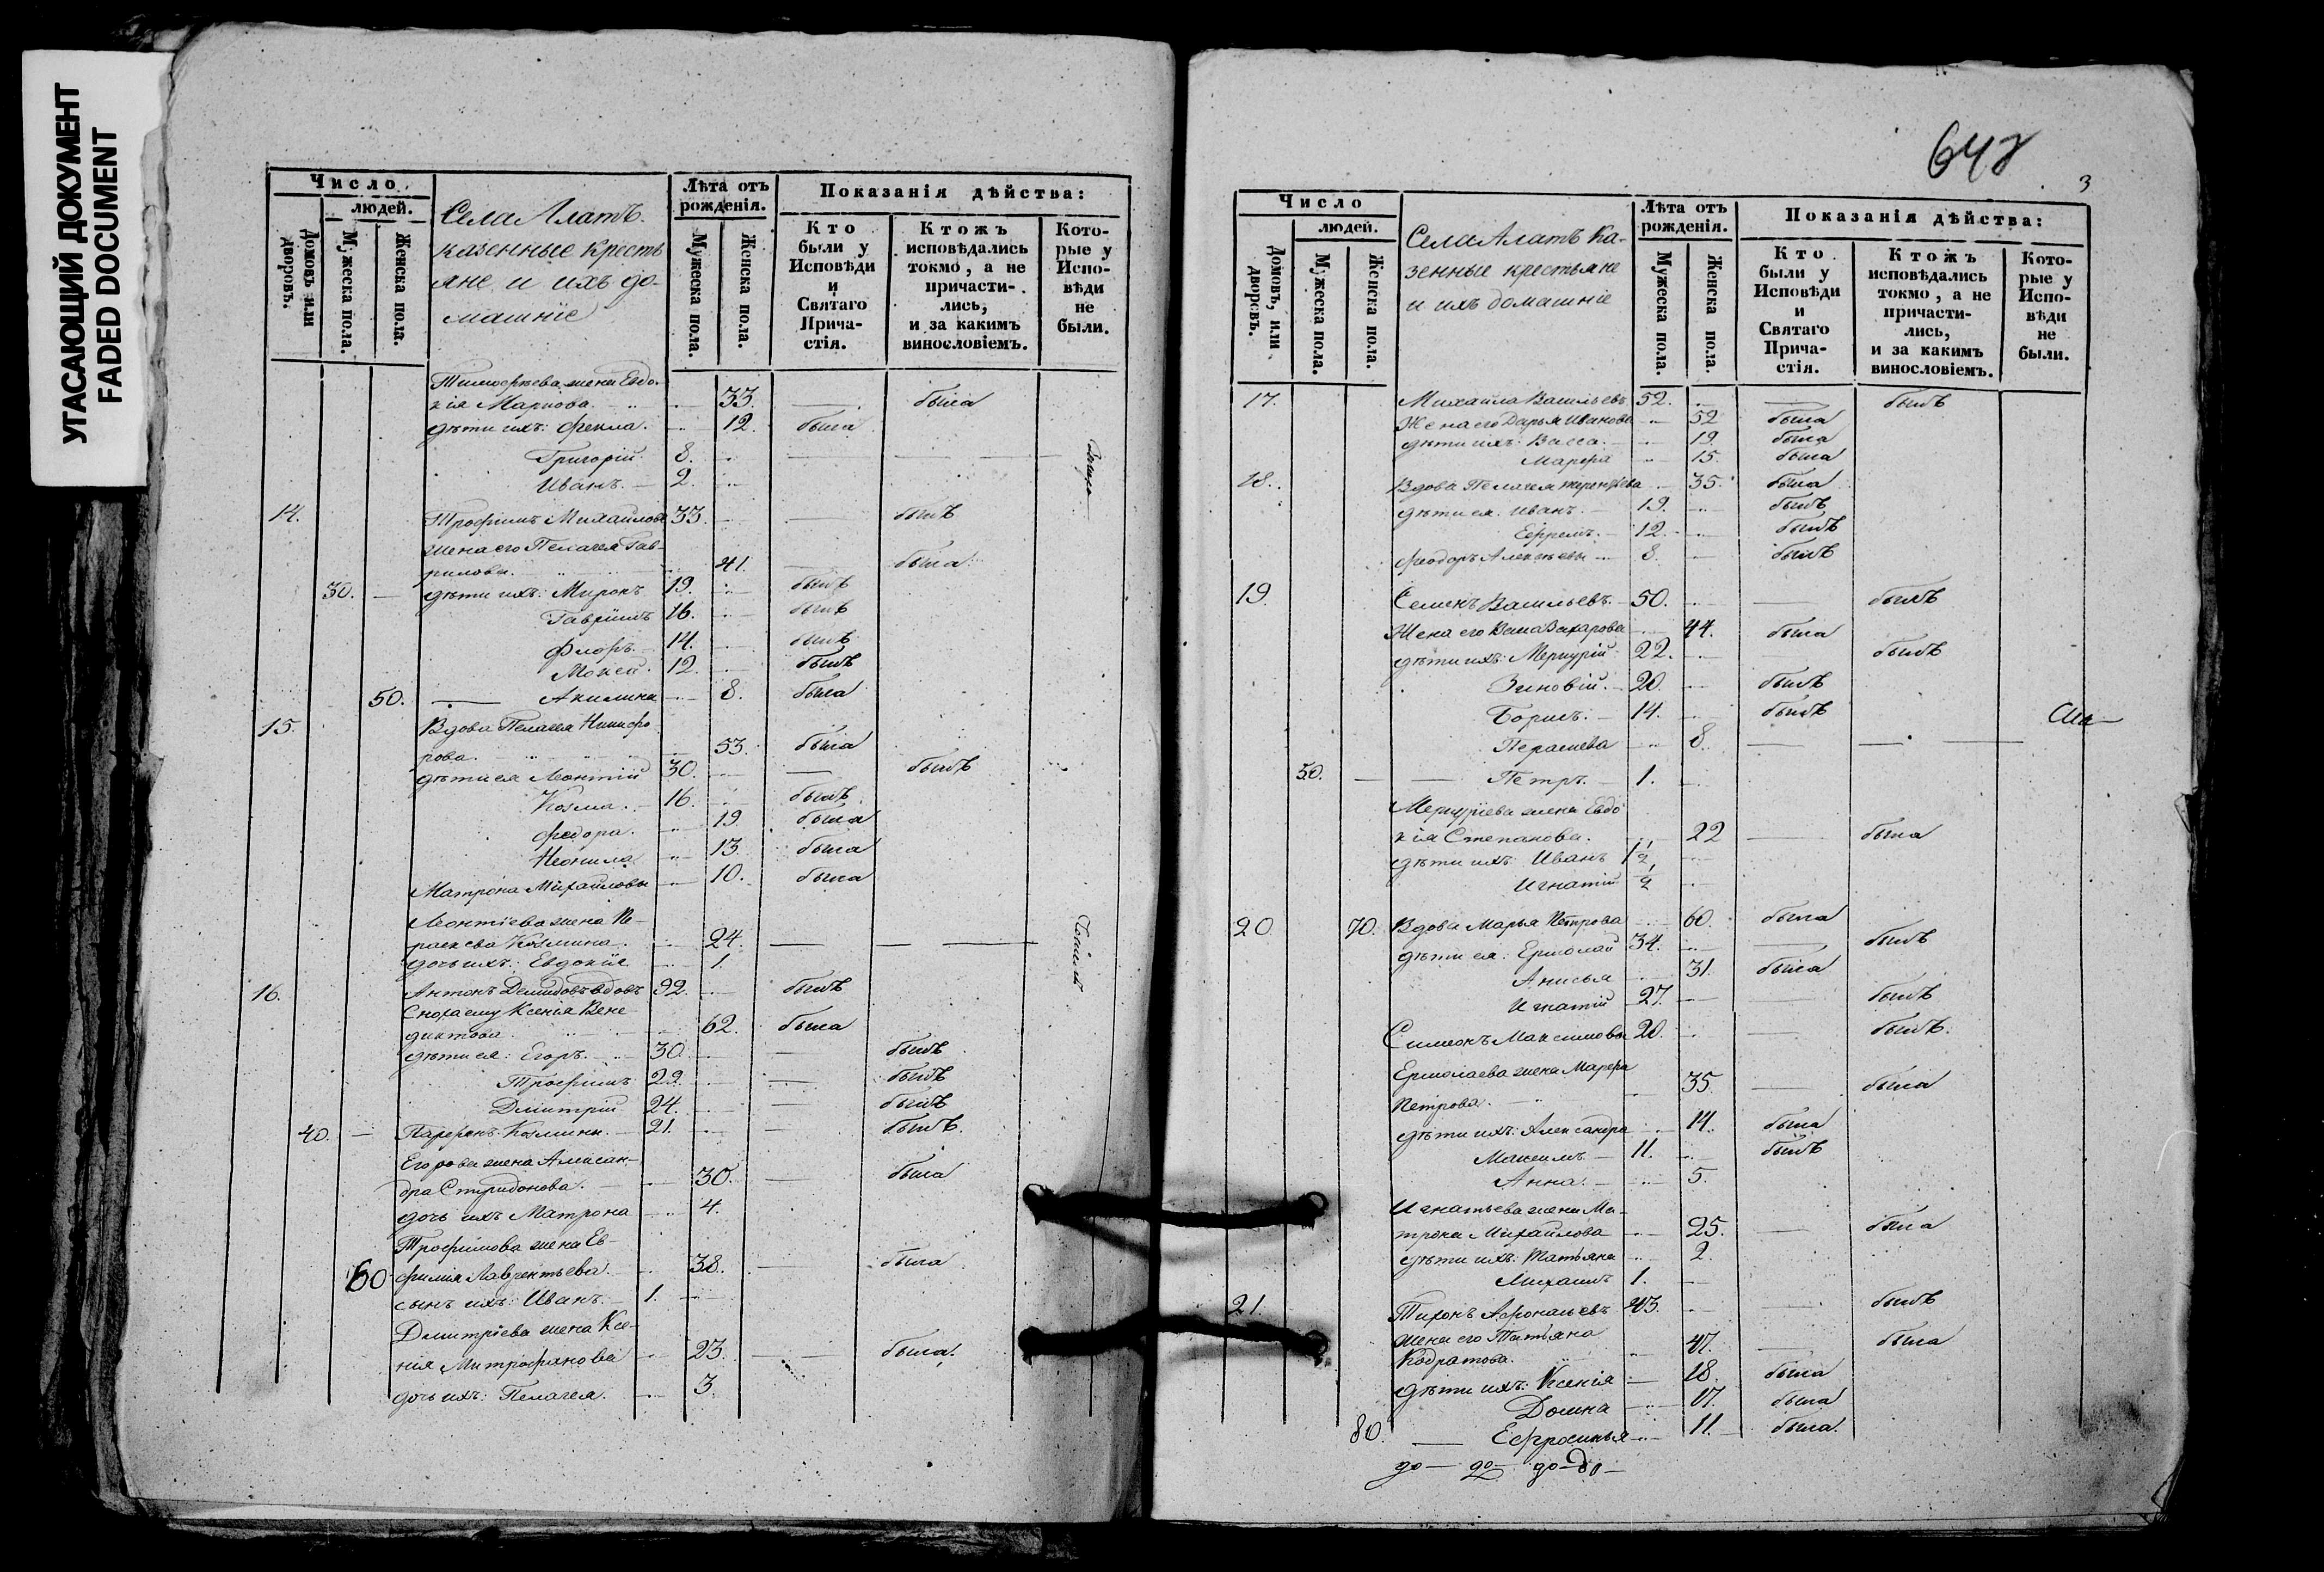 УГАСАЮЩИЙ ДОКУМЕНТ
FADED DOCUMENT
Число
людей.
Домовъ или дворовъ.
Мужеска пола.
Женска пола.
Села Алатъ
казенные кресть
яне и ихъ до-
машніе
Лѣта отъ рожденія.
Мужеска пола.
Женска пола.
Показанія дѣйства:
Кто были у Исповѣди и Святаго Прича-стія.
Ктожъ исповѣдались токмо, а не причасти-лись, и за какимъ винословіемъ.
Кото-рые у Испо-вѣди не были.
Тимофѣева жена Евдо-
кія Маркова. 33. — была
дѣти ихъ: Фекла. 12. была
Григорій. 8. — — —
Иванъ. 2.
14. Трофимъ Михайловъ 33. — былъ
жена его Пелагея Гав-
рилова. 41. — была
30. — дѣти ихъ: Миронъ 19. былъ
Гавріилъ 16. былъ
Флоръ. 14. былъ
Мокей. 12. былъ
50. — Акилина 8. была
15. Вдова Пелагея Никифо
рова. 53. была
дѣти ея Леонтій 30. — былъ
Козма. 16. былъ
Федора. 19. была
Неонила 13. была
Матрона Михайловы 10. была
Леонтіева жена Па-
раскева Козмина. 24. — — —
дочь ихъ: Евдокія 1.
16. Антонъ Демидовъ вдовъ 92. былъ
Сноха ему Ксенья Вене-
диктова. 62. была
дѣти ея: Егоръ. 30. — былъ
Трофимъ 29. — былъ
Дмитрій 24. — былъ
40. — Парфенъ Козмины. 21. — былъ.
Егорова жена Алексан-
дра Спиридонова. 30. — была
дочь ихъ Матрона 4.
Трофимова жена Ев-
60 фимія Лаврентьева. 38. — была
сынъ ихъ: Иванъ. 1.
Дмитріева жена Ксе-
нія Митрофанова 23. — была.
дочь ихъ: Пелагея. 3.
648
3
Число
людей.
Домовъ, или дворовъ.
Мужеска пола.
Женска пола.
Села Алатъ Ка-
зенные крестьяне
и ихъ домашніе
Лѣта отъ рожденія.
Мужеска пола.
Женска пола.
Показанія дѣйства:
Кто были у Исповѣди и Святаго Прича-стія.
Ктожъ исповѣдались токмо, а не причасти-лись, и за какимъ винословіемъ.
Кото-рые у Испо-вѣди не были.
17. Михаила Васильевъ 52. — былъ
Жена его Дарья Иванова 52 была
дѣти ихъ: Васса. 19. была
Марфа 15. была
18. Вдова Пелагея Терентьева 35. была
дѣти ея. Иванъ. 19. былъ
Ефремъ. 12. былъ
Феодоръ Алексѣевы 8. былъ
19. Семенъ Васильевъ. 50. — былъ
Жена его Васса Захарова 44. была
дѣти ихъ: Меркурій 22. былъ
Зиновій. 20. былъ
Борисъ. 14. былъ
Параскева 8. — — —
50. — — Петръ. 1.
Меркуріева жена Евдо
кія Степанова. 22 — была
дѣти ихъ Иванъ 1 1/2
Игнатій 1/2
20 70. Вдова Марья Петрова 60. была
дѣти ея: Ермолай 34. — былъ
Анисья 31. была
Игнатій 27. — былъ
Симеонъ Максимовы 20. — былъ.
Ермолаева жена Марфа
Петрова. 35. — была
дѣти ихъ: Александра 14. была
Максимъ. 11. былъ
Анна. 5.
Игнатьева жена Ма-
трона Михайлова 25. — была
дѣти ихъ: Татьяна 2.
Михаилъ 1.
21. Тихонъ Афонасьевъ 43. — былъ
жена его Татьяна
Кодратова. 47. — была
дѣти ихъ: Ксенія 18. была
Домна 17. была
80. — Ефросинья 11. была.
до — до — до — до —